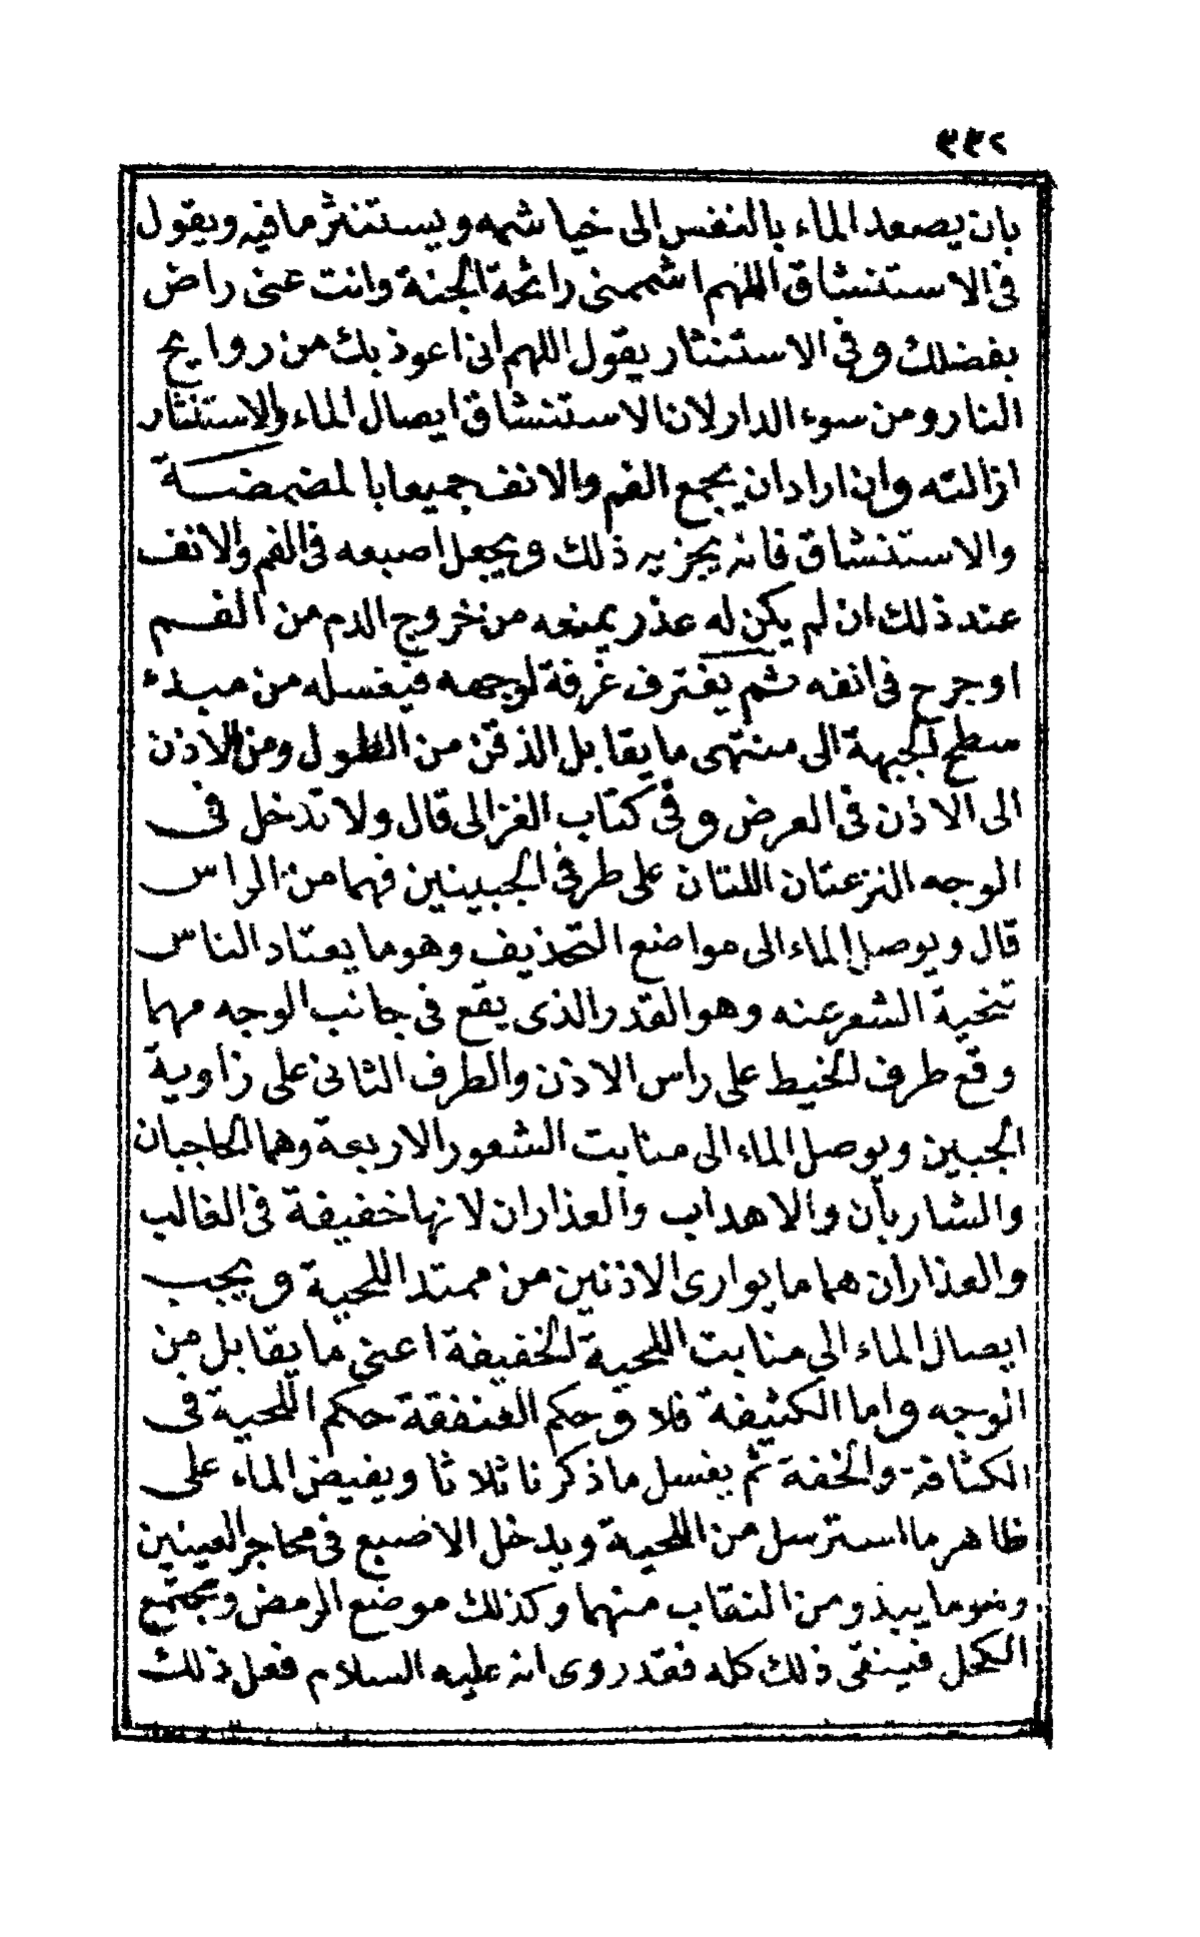 ٣٣٢
بان يصعد الماء بالنفس الى خياشمه ويستنثر ما فيه ويقول
فى الاستنشاق اللهم اشممنى رائحة الجنة وانت عنى راض
بفضلك وفى الاستنثار يقول اللهم انى اعوذ بك من روايح
النار ومن سوء الدار لان الاستنشاق ايصال الماء والاستنثار
ازالته وان اراد ان يجمع الفم والانف جميعا بالمضمضة
والاستنشاق فانه يجزيه ذلك ويجعل اصبعه فى الفم والانف
عند ذلك ان لم يكن له عذر يمنعه من خروج الدم من الفم
او جرح فى انفه ثم يغترف غرفة لوجهه فيغسله من مبدء
سطح الجبهة الى منتهى ما يقابل الذقن من الطول ومن الاذن
الى الاذن فى العرض وفى كتاب الغزالى قال ولا تدخل فى
الوجه النزعتان اللتان على طرفى الجبينين فهما من الراس
قال ويوصل الماء الى مواضع التحذيف وهو ما يعتاد الناس
تنحية الشعر عنه وهو القدر الذى يقع فى جانب الوجه مهما
وقع طرف الخيط على راس الاذن والطرف الثانى على زاوية
الجبين ويوصل الماء الى منابت الشعور الاربعة وهما الحاجبان
والشاربان والاهداب والعذاران لانها خفيفة فى الغالب
والعذاران هما ما يوارى الاذنين من ممتد اللحية ويجب
ايصال الماء الى منابت اللحية الخفيفة اعنى ما يقابل من
الوجه واما الكثيفة فلا وحكم العنفقة حكم اللحية فى
الكثافة والخفة ثم يغسل ما ذكرنا ثلاثا ويفيض الماء على
ظاهر ما استرسل من اللحية ويدخل الاصبع فى محاجر العينين
وهو ما يبذو من النقاب منهما وكذلك موضع الرمض ومجتمع
الكحل فينقى ذلك كله فقد روى انه عليه السلام فعل ذلك